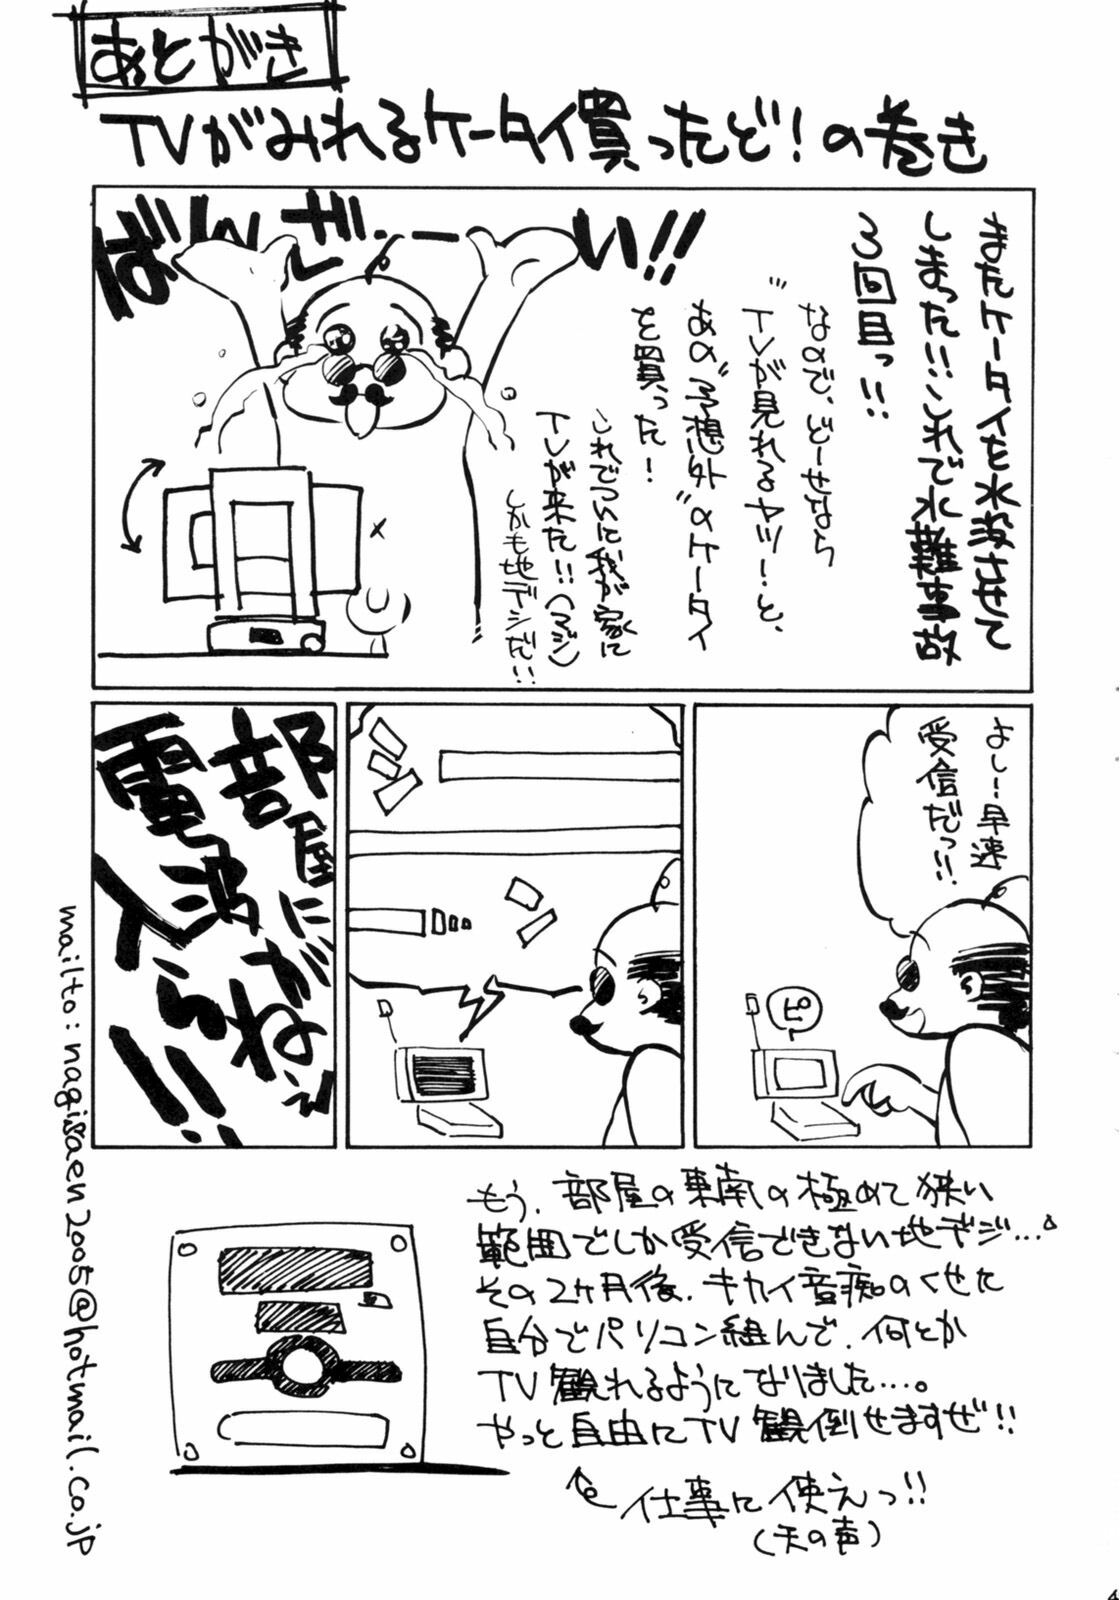 あとがき
TVがみれるケータイ買ったど！の巻き
またケータイを水没させて
しまった!!これで水難事故
3回目っ!!
なので、どーせなら
"TVが見れるヤツ!"と、
あの"予想外"のケータイ
を買った!
これでついに我が家に
TVが来た!!(マジ)
しかも地デジだ!!
ばんざーい!!
よし!早速
受信だっ!!
ピ
部屋に
電波がねぇ
入らん!!
もう、部屋の東南の極めて狭い
範囲でしか受信できない地デジ…。
その2ヶ月後、キカイ音痴のくせに
自分でパソコン組んで、何とか
TV観れるようになりました…。
やっと自由にTV観倒せますぜ!!
仕事に使えっ!!
(天の声)
mailto:nagisaen2005@hotmail.co.jp
4